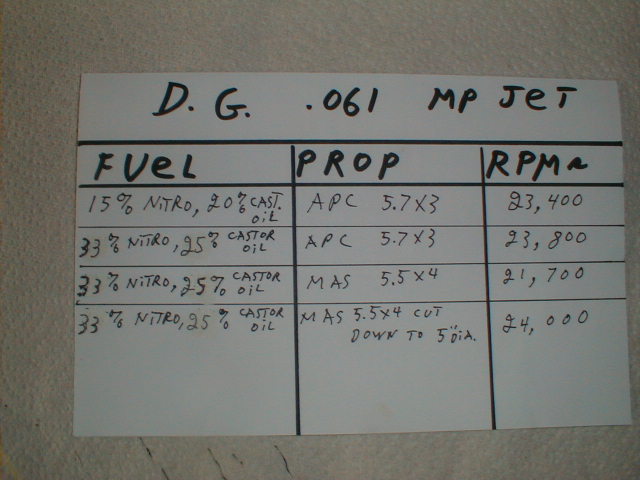 D. G. .061 MP JET
FUEL PROP RPMs
15% NITRO, 20% CAST. OIL APC 5.7X3 23,400
33% NITRO, 25% CASTOR OIL APC 5.7X3 23,800
33% NITRO, 25% CASTOR OIL MAS 5.5X4 21,700
33% NITRO, 25% CASTOR OIL MAS 5.5X4 CUT 24,000
DOWN TO 5" DIA.